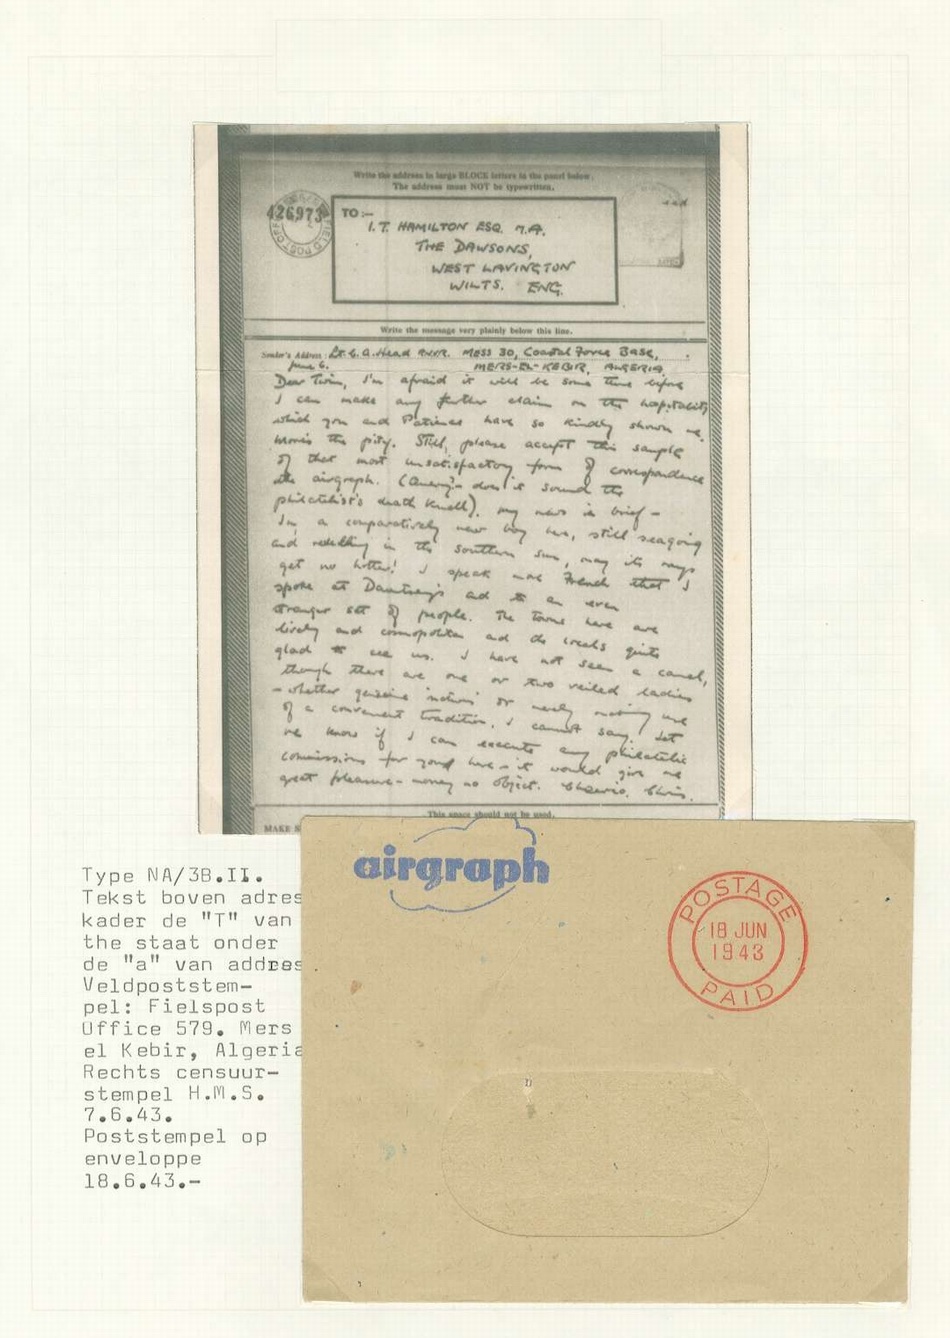 Write the address in large BLOCK letters in the panel below.
The address must NOT be typewritten.
426973
FIELD POST OFF
TO :—
I.T. HAMILTON ESQ. M.A.
THE DAWSONS,
WEST LAVINGTON
WILTS. ENG.
Write the message very plainly below this line.
Sender's Address : Lt. G.A. Head RNVR. MESS 30, Coastal Force Base,
June 6. MERS-EL-KEBIR, ALGERIA.
Dear Twin, I'm afraid it will be some time before
I can make any further claim on the hospitality
which you and Patience have so kindly shown me.
More's the pity. Still, please accept this sample
of that most unsatisfactory form of correspondence
the airgraph. (Query:- does it sound the
philatelist's death knell). My news in brief -
I'm a comparatively new boy here, still seagoing
and in the southern sun, may its rays
get no hotter! I speak more French that I
spoke at Dauntsey's and to an even
stranger set of people. The towns here are
lively and cosmopolitan and the locals quite
glad to see us. I have not seen a camel,
though there are one or two veiled ladies
- whether genuine natives or merely making use
of a convenient tradition, I cannot say. Let
me know if I can execute any philatelic
commissions for you here - it would give me
great pleasure - money no object. Cheerio, Chris.
This space should not be used.
MAKE S
airgraph
POSTAGE
18 JUN
1943
PAID
Type NA/3B.II.
Tekst boven adres
kader de "T" van
the staat onder
de "a" van addres
Veldpoststem-
pel: Fielspost
Office 579. Mers
el Kebir, Algeria
Rechts censuur-
stempel H.M.S.
7.6.43.
Poststempel op
enveloppe
18.6.43.-